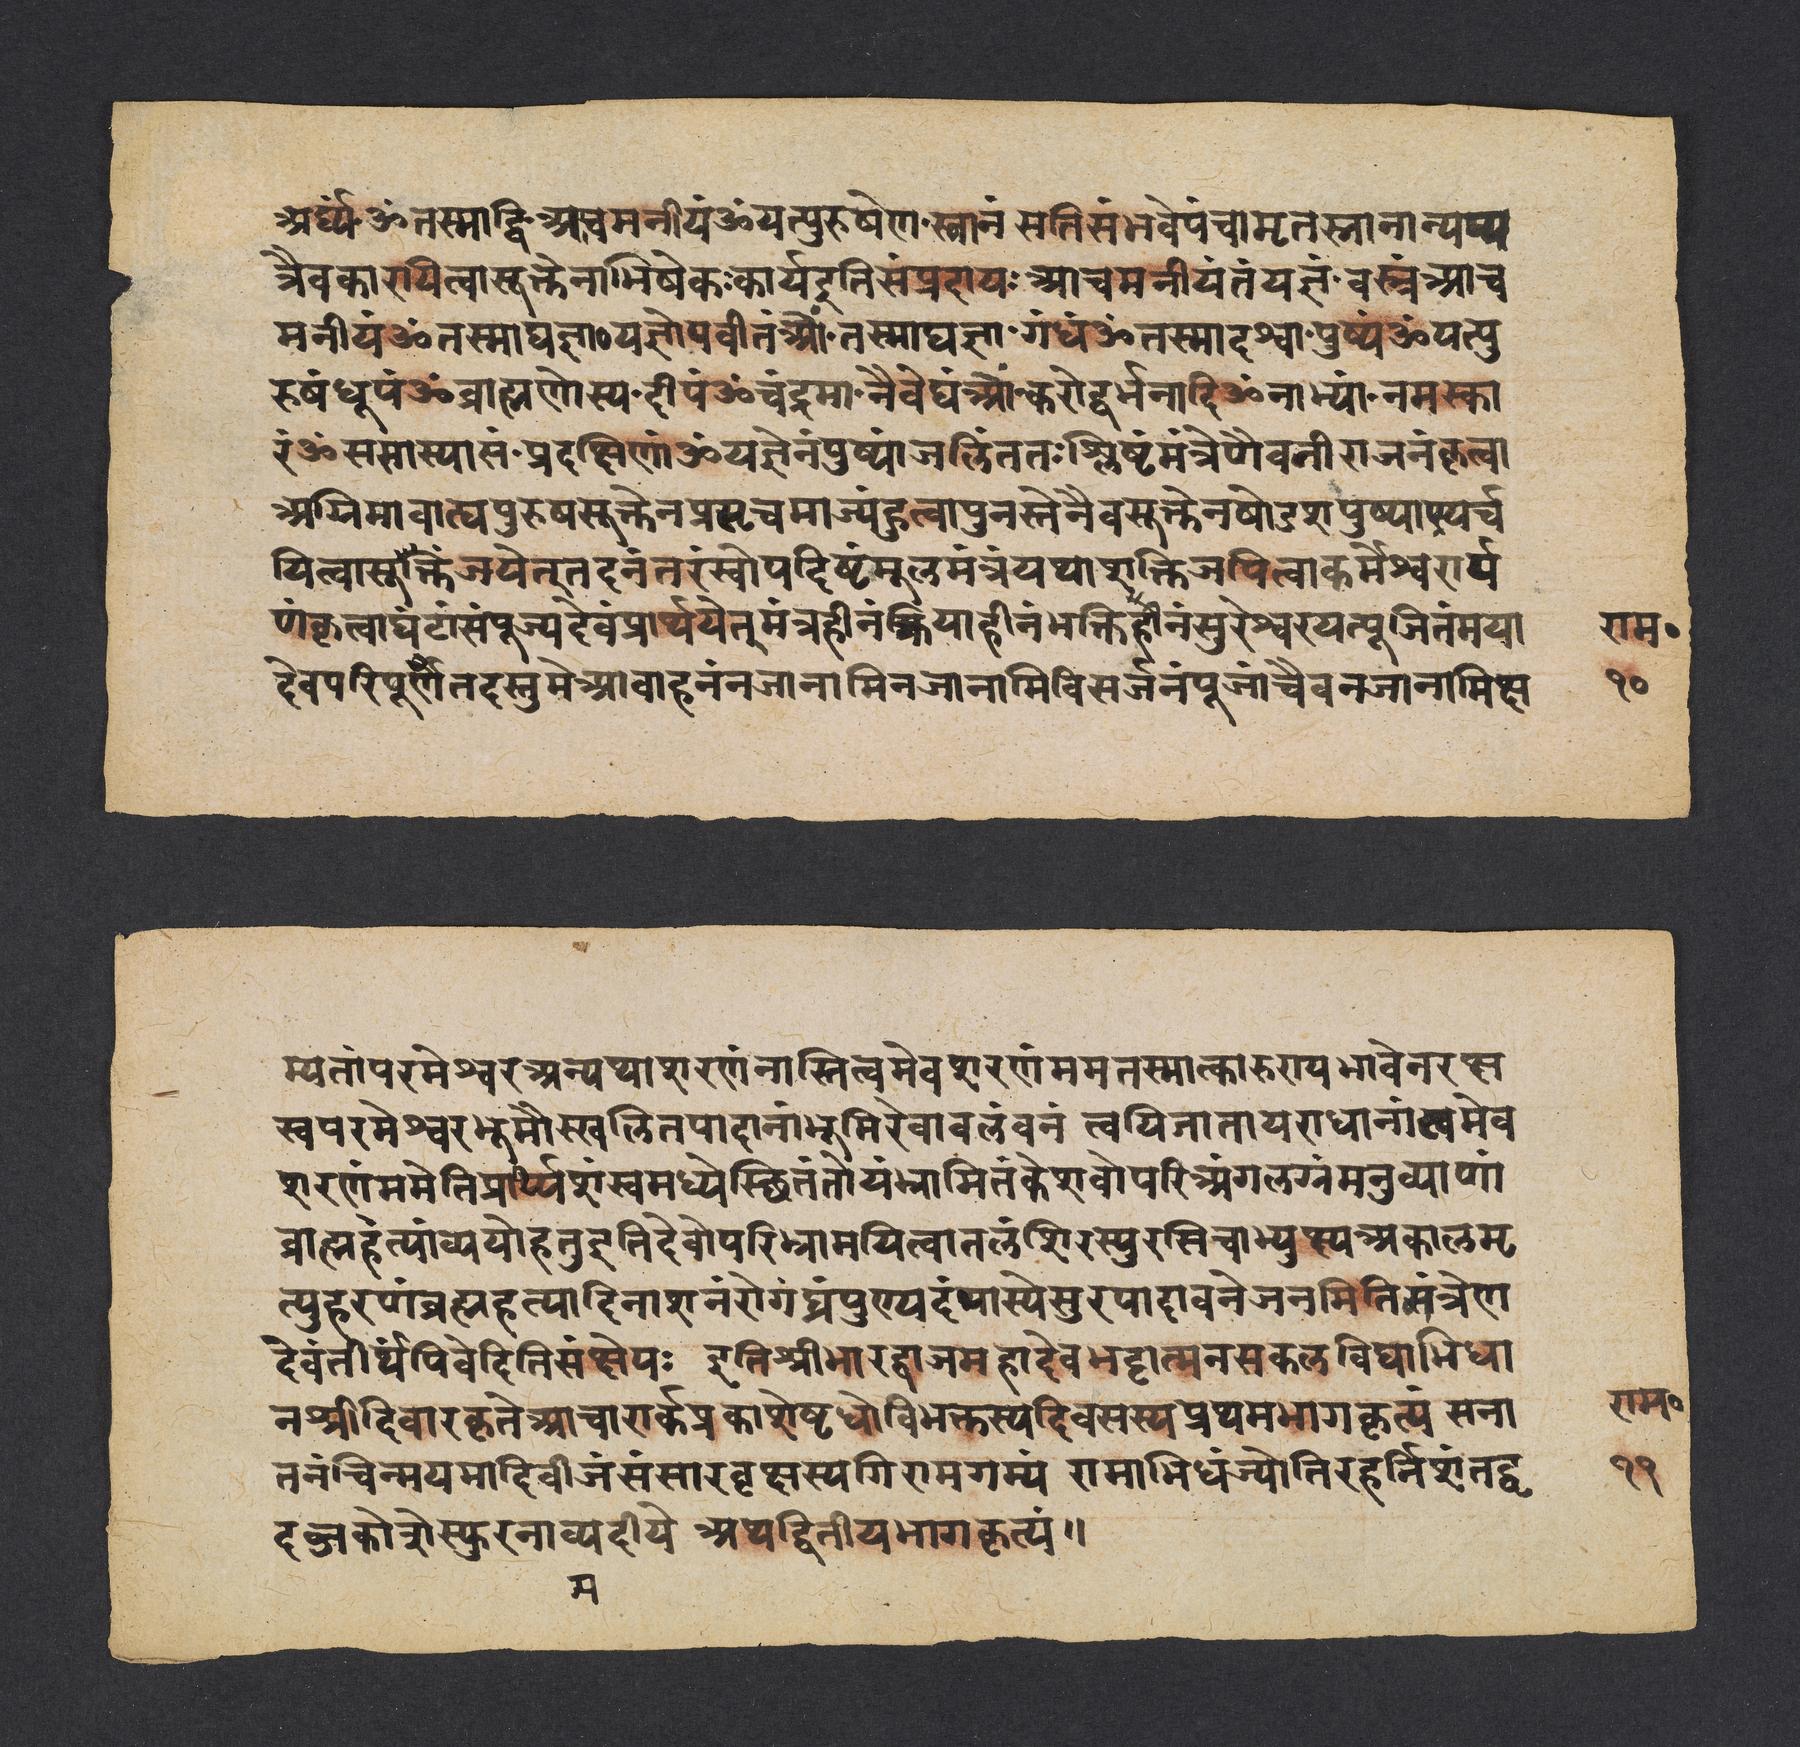 अर्घ्यं·ॐतस्माद्वि·आचमनीयंॐयत्पुरुषेण·स्नानं सतिसंभवेपंचामृतस्नानान्यप्य
त्रैवकारयित्वासूक्तेनाभिषेकःकार्यइतिसंप्रदायः आचमनीयंतंयज्ञं·वस्त्रंआच
मनीयंॐतस्माद्यज्ञा०यज्ञोपवीतंओं·तस्माद्यज्ञा·गंधंॐतस्मादश्वा·पुष्पंॐयत्पु
रुषंधूपंॐब्राह्मणोस्य·दीपंॐचंद्रमा·नैवेद्यंओं·करोद्वर्त्तनादिॐनाभ्यां·नमस्का
रंॐसप्तास्यासं·प्रदक्षिणांॐयज्ञेनंपुष्पांजलिंततःश्लिष्टंमंत्रेणैवनीराजनंकृत्वा
अग्निमावाह्यपुरुषसूक्तेनप्रत्यृचमाज्यंहुत्वापुनस्तेनैवसूक्तेनषोडशपुष्पाण्यर्च
यित्वासूक्तिंजपेत्तदनंतरंस्वोपदिष्टंमूलमंत्रंयथाशक्तिजपित्वाकर्मेश्वरार्प
णंकृत्वाघंटांसंपूज्यदेवंप्रार्थ्ययेत्मंत्रहीनंक्रियाहीनंभक्तिहीनंसुरेश्वरयत्पूजितंमया
देवपरिपूर्णंतदस्तुमेआवाहनंनजानामिनजानामिविसर्जनंपूजांचैवनजानामिक्ष
राम०
१०
म्यतांपरमेश्वरअन्यथाशरणंनास्तित्वमेवशरणंममतस्मात्कारुण्यभावेनरक्ष
स्वपरमेश्वरभूमौस्खलितपादानांभूमिरेवावलंवनं त्वयिजातापराधानांत्वमेव
शरणंममेतिप्रार्थ्यशंखमध्येस्थितंतोयंभ्रामितंकेशवोपरिअंगलग्नंमनुष्याणां
ब्राह्महंत्यांव्यपोहतुइतिदेवोपरिभ्रामयित्वातलंशिरस्पुरसिचाभ्युक्ष्यअकालमृ
त्युहरणंब्रह्महत्यादिनाशनंरोगंघ्नंपुण्यदंथास्येसुरपादावनेजनमितिमंत्रेण
देवंतीर्थंपिवेदितिसंक्षेपः इतिश्रीभारद्वाजमहादेवभट्टात्मनसकलविद्याभिधा
नश्रीदिवारकृतेआचारार्कप्रकाशेष्टधोविभक्तस्यदिवसस्यप्रथमभागकृत्यं सना
तनंचिन्मयमादिवीजंसंसारवृक्षस्यगिरामगम्यं रामाभिधंज्योतिरहर्निशंतद्धृ
दब्जकोशेस्फुरनाव्यदीये अथद्वितीयभागकृत्यं॥
म
राम०
११